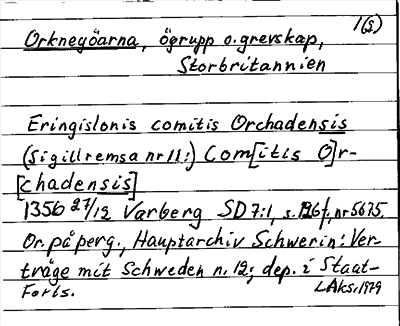 1(s)
Orknegöarna, ögrupp o. grevskap,
Storbritannien
Eringislonis comitis Orchadensis
(sigillremsa nr 11:) Com[itis O]r-
[chadensis]
1356 27/12 Varberg SD 7:1, s. 126 f, nr 5675.
Or. på perg., Hauptarchiv Schwerin: Ver-
träge mit Schweden n. 12; dep. i Staat-
Forts.
LAks, 1979